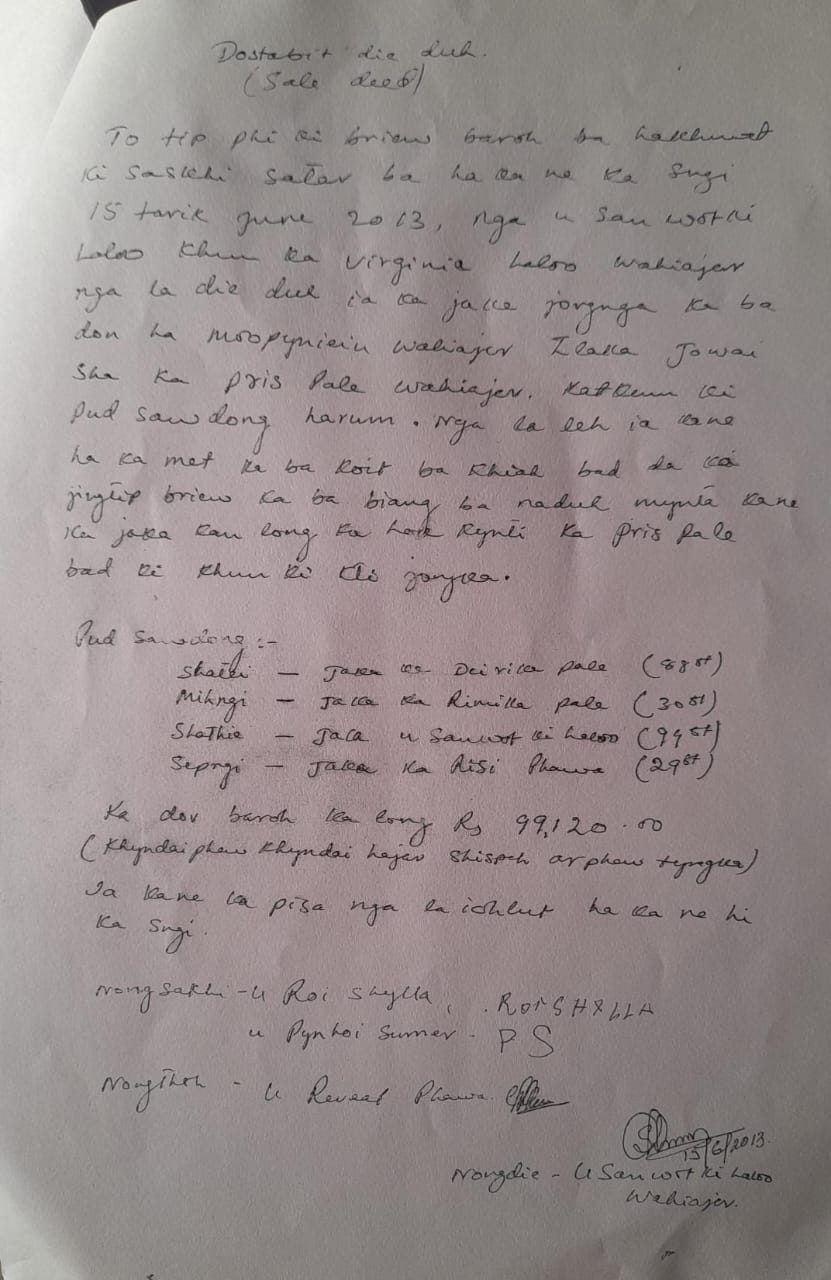 Dostabit die duh.
(Sale deed)
To tip phi ki briew baroh ba hakhmat
ki saskhi satar ba ha ka ne ka sngi
15 tarik June 2013, nga u San wot ki
Laloo khun ka Virginia Laloo Wahiajer
nga la die duh ia ka jaka jongnga ka ba
don ha Moopyniein Wahiajer Ilaka Jowai
sha ka Pris Pale Wahiajer. Katkum ki
Pud sawdong harum. Nga la leh ia kane
ha ka met ka ba koit ba khiah bad da ka
jingtip briew ka ba biang ba naduh mynta kane
ka jaka kan long ka hok kynti ka Pris Pale
bad ki khun ki kti jongka.
Pud Sawdong :-
Shatei - Jaka ka Deirika Pale (88st)
Mihngi - Jaka ka Rimika Pale (30st)
Shathie - Jaka u Sanwot ki Laloo (99st)
Sepngi - Jaka Ka Risi Phawa (29st)
Ka dor baroh ka long Rs 99,120.00
(Khyndaiphew khyndai hajar shispah arphew tyngka)
Ia kane ka pisa nga la ioh lut ha ka ne hi
ka sngi.
Nongsakhi - U Roi Shylla, ROI SHYLLA
U Pynhoi Sumer - P S
Nongthoh - U Reveal Phawa.
15/6/2013.
Nongdie - U Sanwot ki Laloo
Wahiajer.